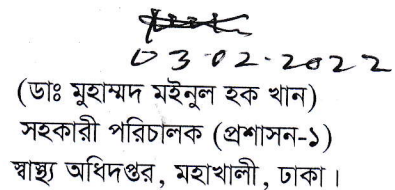 03.02.2022
(ডাঃ মুহাম্মদ মইনুল হক খান)
সহকারী পরিচালক (প্রশাসন-১)
স্বাস্থ্য অধিদপ্তর, মহাখালী, ঢাকা।